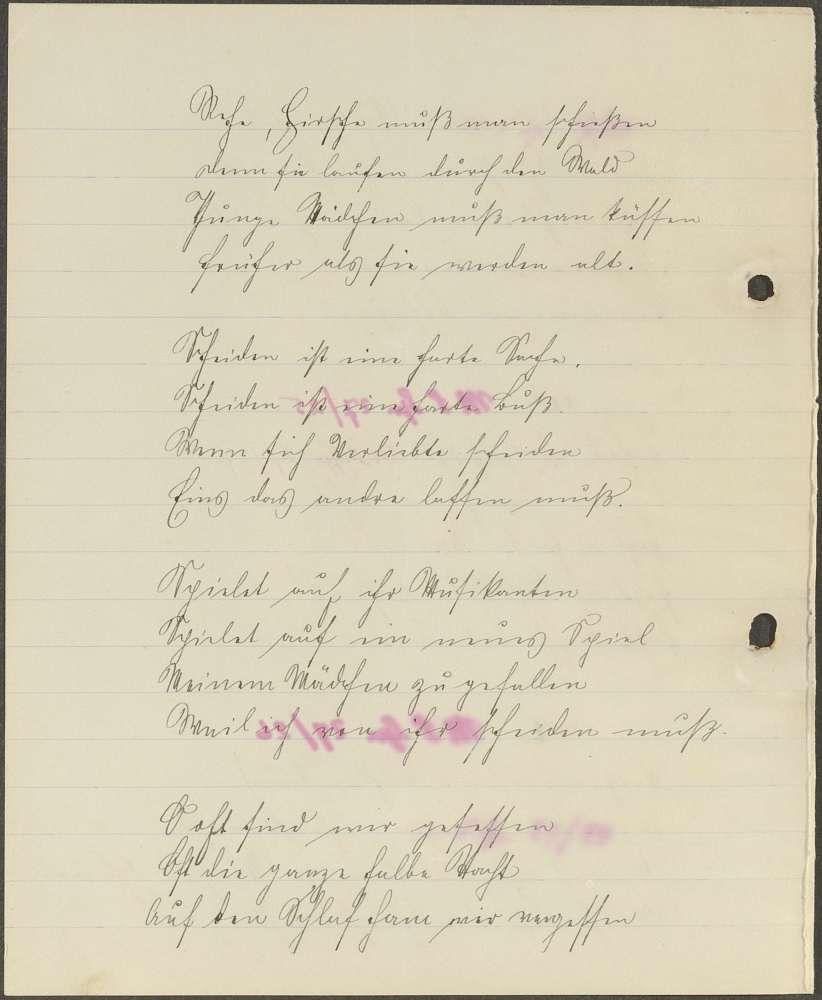 Rehe, Hirsche muß man schießen
denn sie laufen durch den Wald
Junge Mädchen muß man küssen
früher als sie werden alt.
Scheiden ist eine harte Sache.
Scheiden ist eine harte Buß.
Wenn sich Verliebte scheiden
Eins das andre lassen muß.
Spielet auf ihr Musikanten
Spielet auf ein neues Spiel
Meinem Mädchen zu gefallen
Weil ich von ihr scheiden muß.
O oft sind wir gesessen
Oft die ganze halbe Nacht
Auf den Schlaf ham wir vergessen